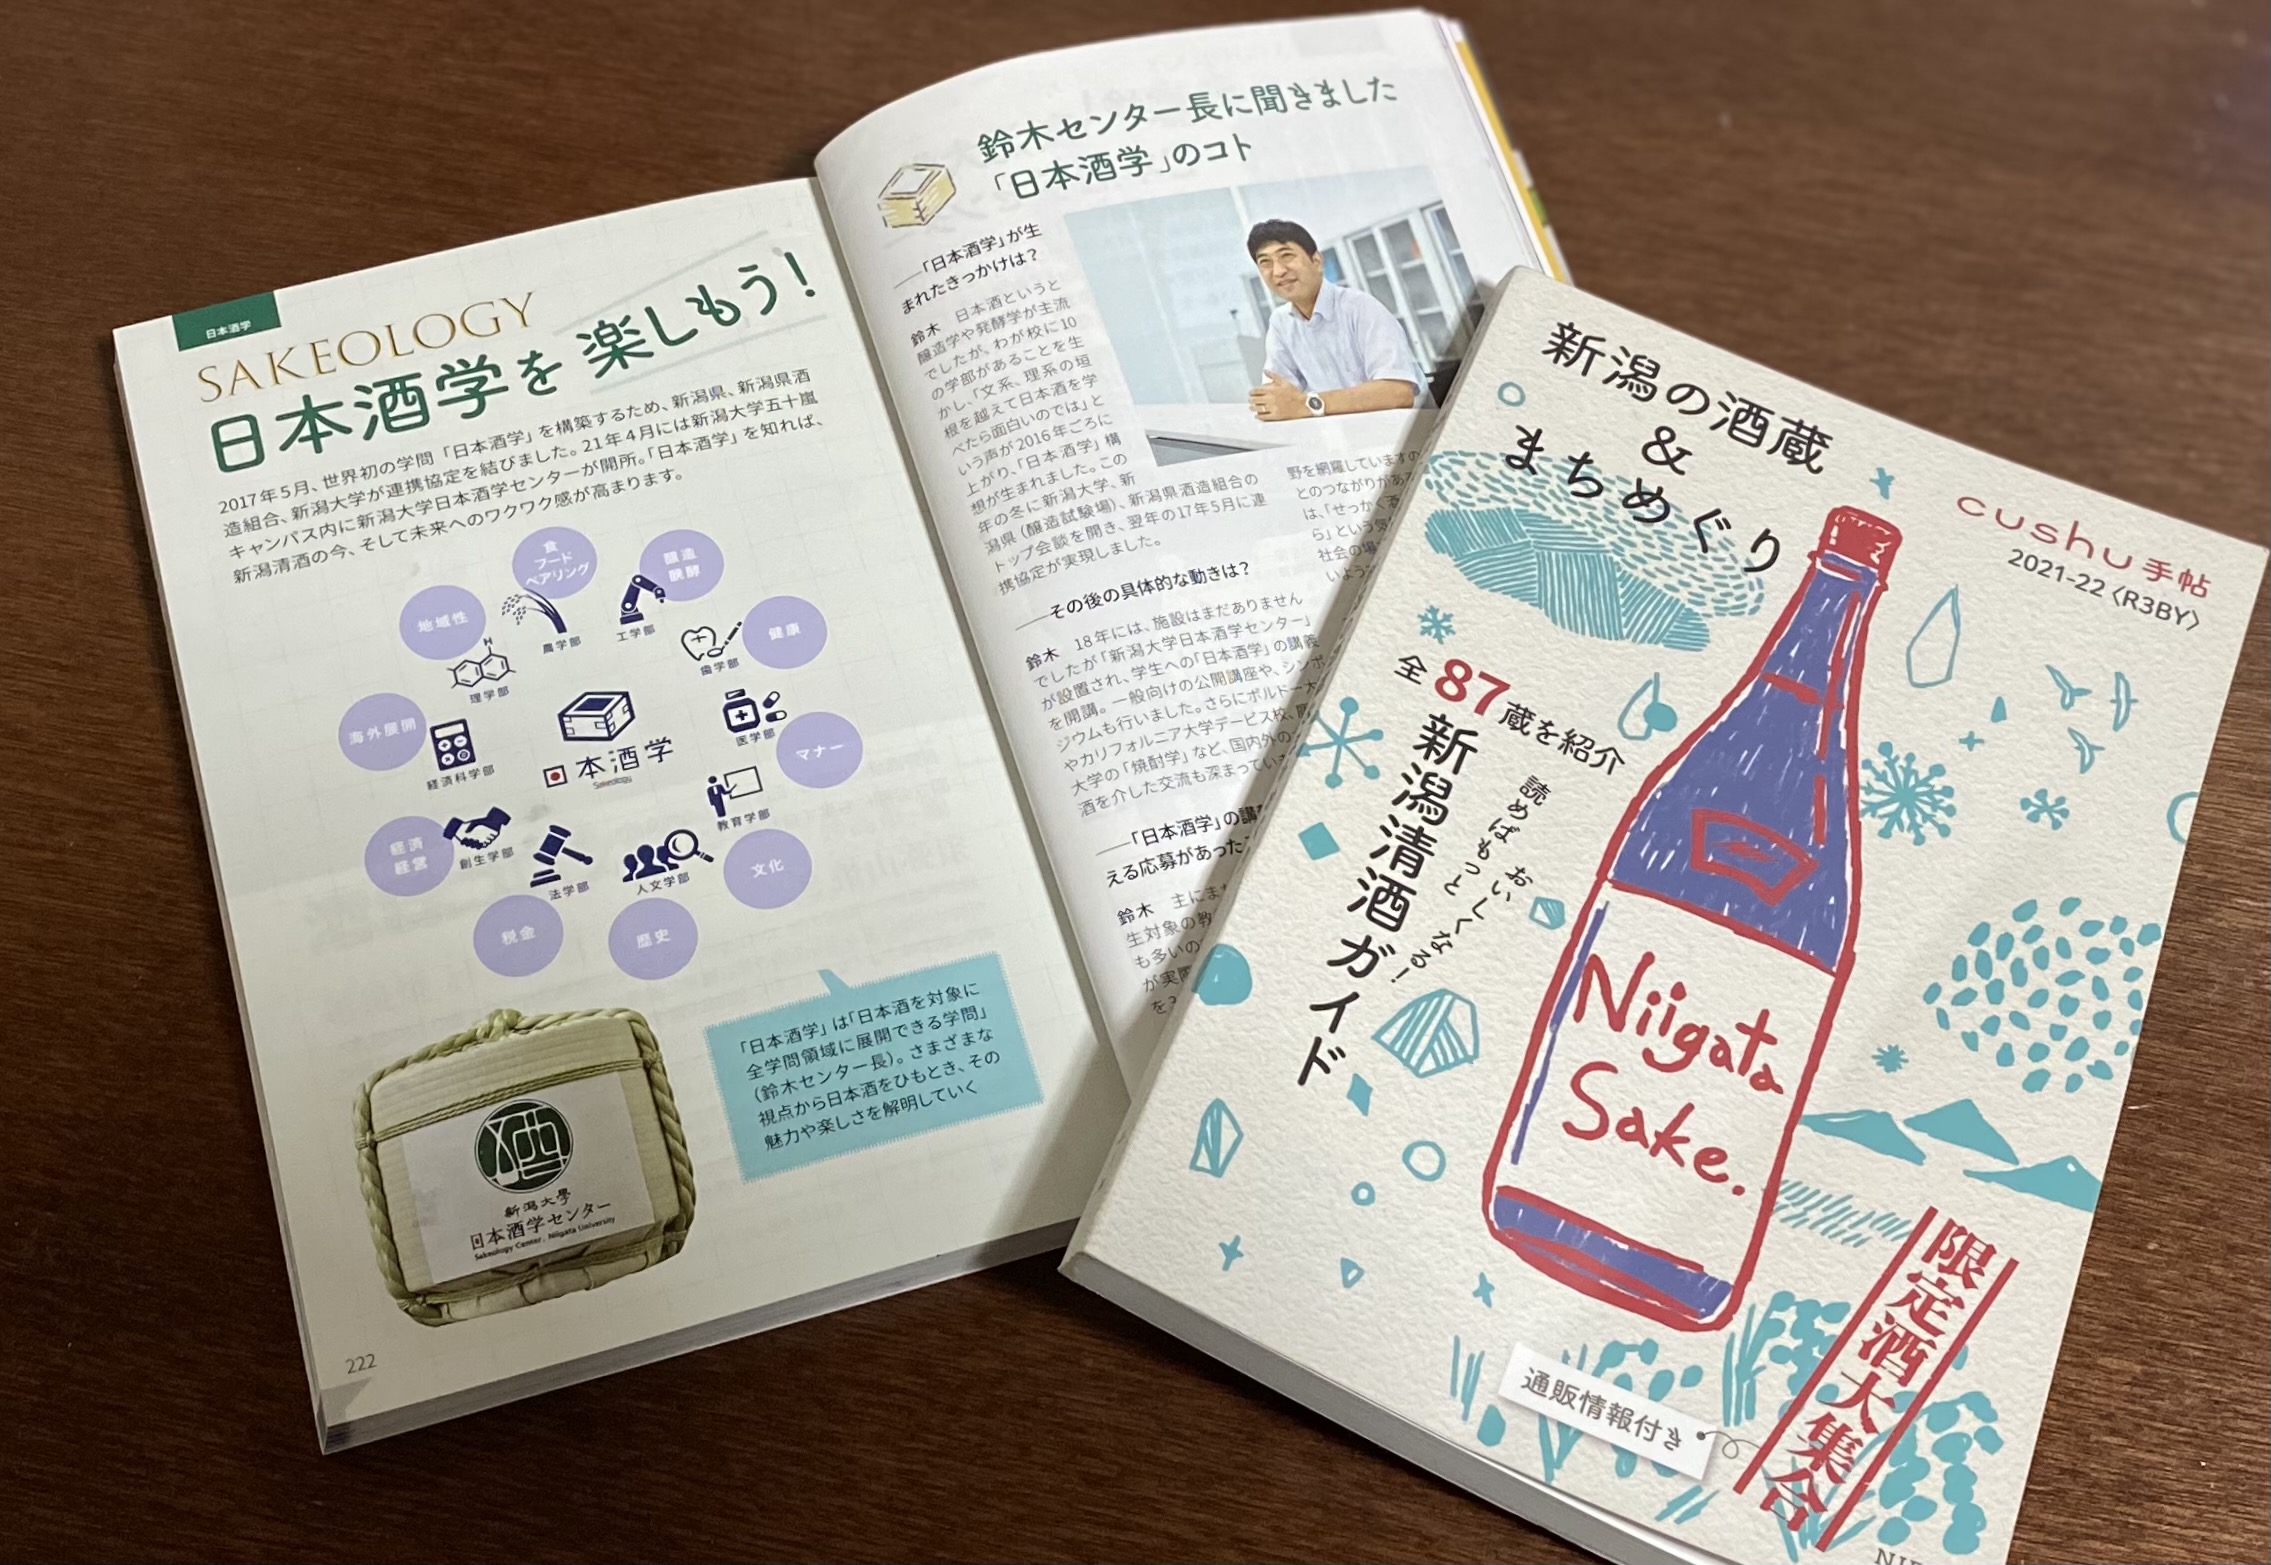 日本酒学
SAKEOLOGY
日本酒学を楽しもう！
2017年5月、世界初の学問「日本酒学」を構築するため、新潟県、新潟県酒
造組合、新潟大学が連携協定を結びました。21年4月には新潟大学五十嵐
キャンパス内に新潟大学日本酒学センターが開所。「日本酒学」を知れば、
新潟清酒の今、そして未来へのワクワク感が高まります。
食
フード
ペアリング
醸造
醗酵
地域性
農学部
工学部
健康
歯学部
理学部
海外展開
経済科学部
日本酒学
Sakeology
医学部
マナー
教育学部
経済
経営
創生学部
法学部
人文学部
文化
税金
歴史
「日本酒学」は「日本酒を対象に
全学問領域に展開できる学問」
（鈴木センター長）。さまざまな
視点から日本酒をひもとき、その
魅力や楽しさを解明していく
新潟大學
日本酒学センター
Sakeology Center, Niigata University
222
鈴木センター長に聞きました
「日本酒学」のコト
――「日本酒学」が生
まれたきっかけは？
鈴木　日本酒というと
醸造学や発酵学が主流
でしたが、わが校に10
の学部があることを生
かし、「文系、理系の垣
根を越えて日本酒を学
べたら面白いのでは」と
いう声が2016年ごろに
上がり、「日本酒学」構
想が生まれました。この
年の冬に新潟大学、新
潟県（醸造試験場）、新潟県酒造組合の
トップ会談を開き、翌年の17年5月に連
携協定が実現しました。
――その後の具体的な動きは？
鈴木　18年には、施設はまだありません
でしたが「新潟大学日本酒学センター」
が設置され、学生への「日本酒学」の講義
を開講。一般向けの公開講座や、シンポ
ジウムも行いました。さらにボルドー大
やカリフォルニア大学デービス校、
大学の「焼酎学」など、国内外の
酒を介した交流も深まってい
――「日本酒学」の講
える応募があった
鈴木　主にま
生対象の教
も多いの
が実
を
野を網羅していますの
とのつながりがあ
は、「せっかく
ら」という気
社会の場
いよう
新潟の酒蔵
&
まちめぐり
cushu手帖
2021-22〈R3BY〉
全87蔵を紹介
読めばもっと
おいしくなる！
新潟清酒ガイド
Niigata
Sake.
限定酒大集合
通販情報付き